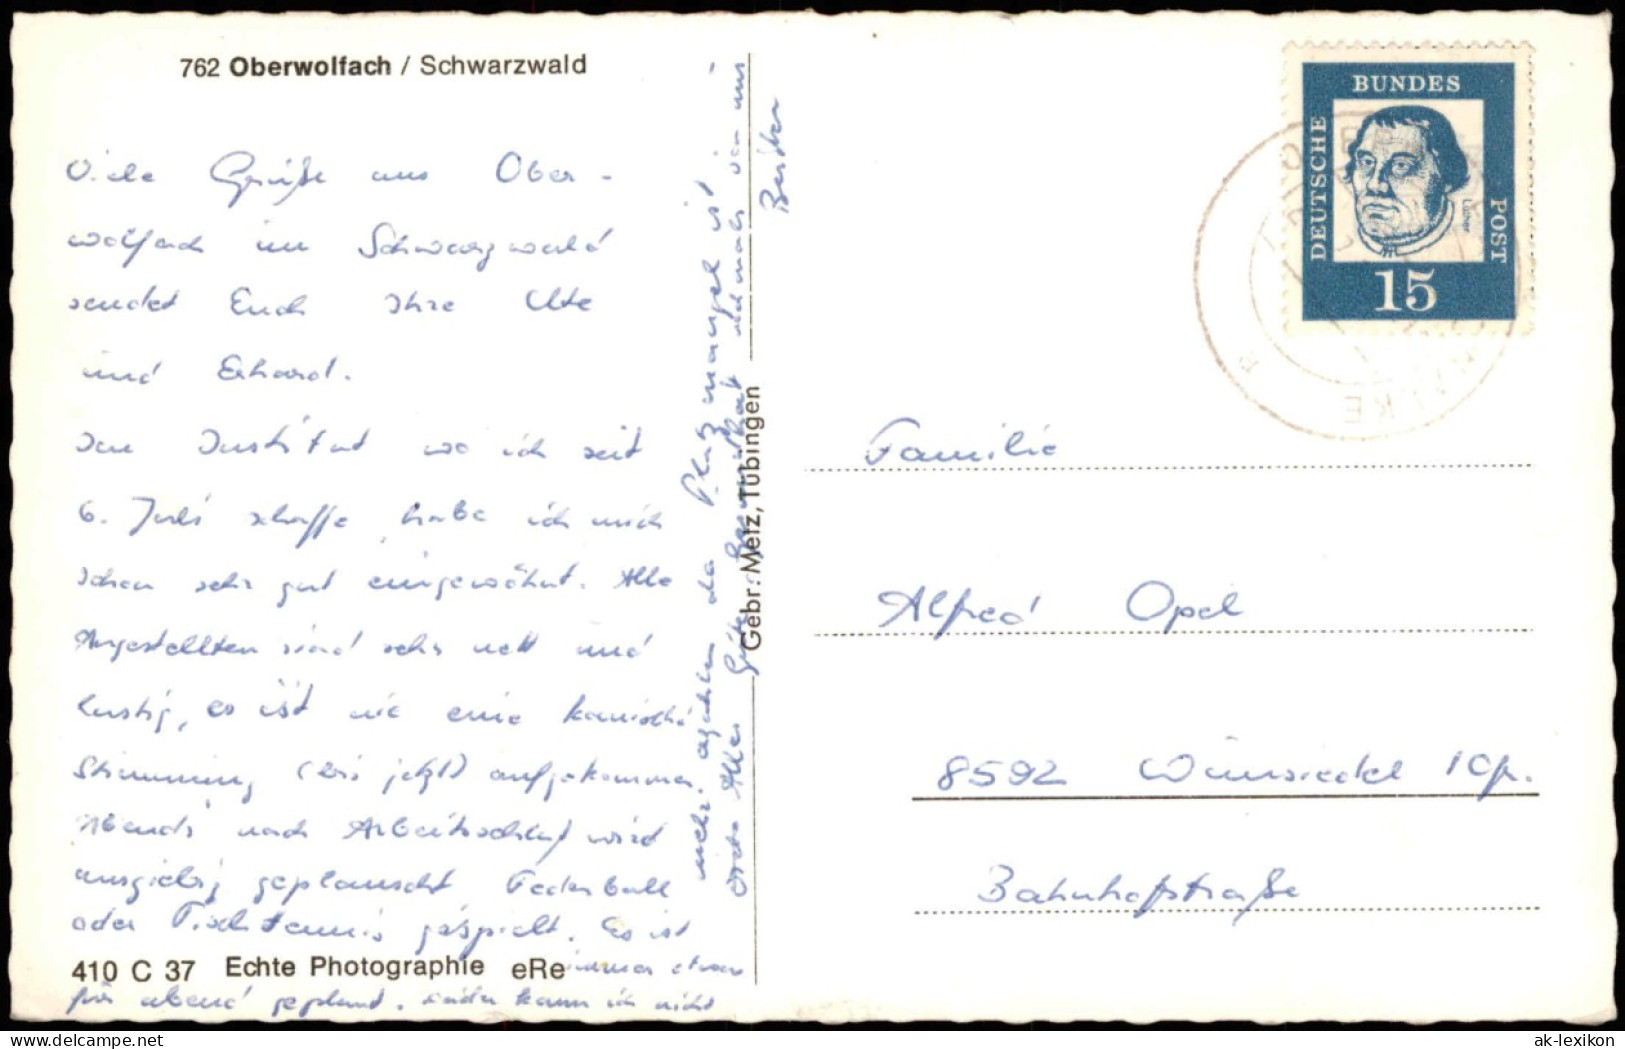 762 Oberwolfach / Schwarzwald
Viele Grüße aus Ober-
wolfach im Schwarzwald
sendet Euch Ihre Ute
und Erhard.
Im Institut wo ich seit
6. Juli schaffe habe ich mich
schon sehr gut eingewöhnt. Alle
Angestellten sind sehr nett und
lustig, es ist nie eine komische
Stimmung (bis jetzt) aufgekommen.
Abends nach Arbeitsschluß wird
ausgiebig geplauscht Federball
oder Tischtennis gespielt. Es ist
immer etwas
für abend geplant. Leider kann ich nicht
mehr da Platzmangel ist
Alles Gute
nochmals von uns
Beiden
410 C 37 Echte Photographie eRe
Gebr. Metz, Tübingen
DEUTSCHE
BUNDES
POST
Luther
15
Familie
Alfred Opel
8592 Wunsiedel
Bahnhofstraße
ak-lexikon